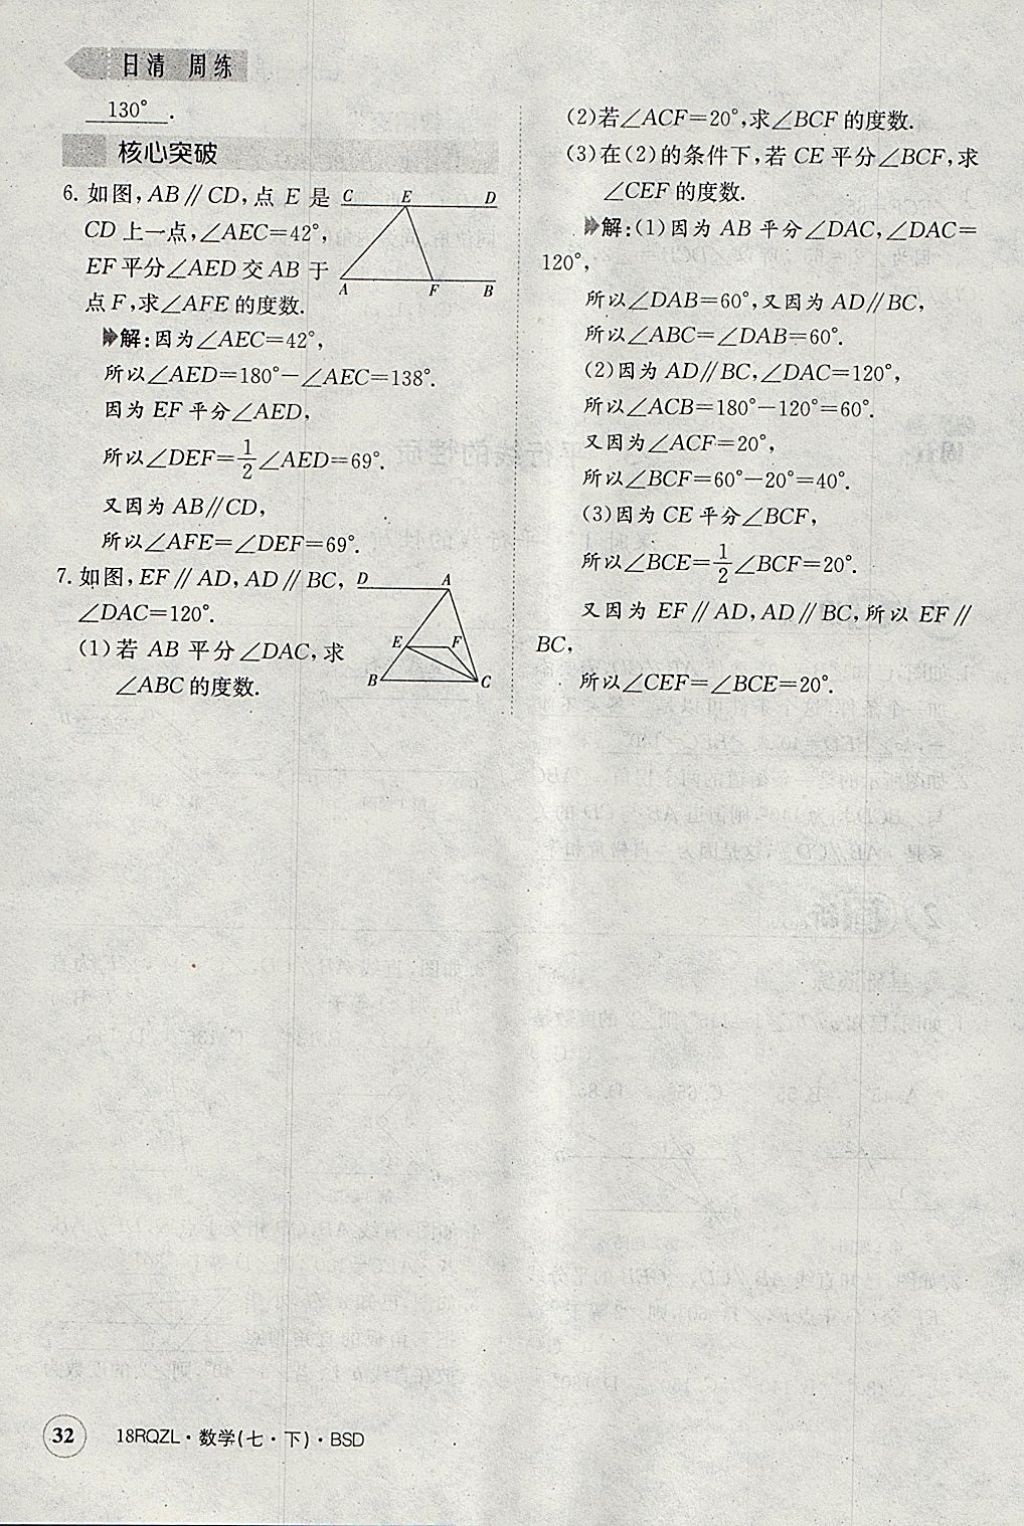 日清 周练
130°.
核心突破
6. 如图,AB∥CD,点 E 是
CD 上一点,∠AEC=42°,
EF 平分∠AED 交 AB 于
点 F,求∠AFE 的度数.
C E D
A F B
解:因为∠AEC=42°,
所以∠AED=180°-∠AEC=138°.
因为 EF 平分∠AED,
所以∠DEF=1/2∠AED=69°.
又因为 AB∥CD,
所以∠AFE=∠DEF=69°.
7. 如图,EF∥AD,AD∥BC,
∠DAC=120°.
(1)若 AB 平分∠DAC,求
∠ABC 的度数.
D A
E F
B C
(2)若∠ACF=20°,求∠BCF 的度数.
(3)在(2)的条件下,若 CE 平分∠BCF,求
∠CEF 的度数.
解:(1)因为 AB 平分∠DAC,∠DAC=
120°,
所以∠DAB=60°,又因为 AD∥BC,
所以∠ABC=∠DAB=60°.
(2)因为 AD∥BC,∠DAC=120°,
所以∠ACB=180°-120°=60°.
又因为∠ACF=20°,
所以∠BCF=60°-20°=40°.
(3)因为 CE 平分∠BCF,
所以∠BCE=1/2∠BCF=20°.
又因为 EF∥AD,AD∥BC,所以 EF∥
BC,
所以∠CEF=∠BCE=20°.
32 18RQZL·数学(七·下)·BSD